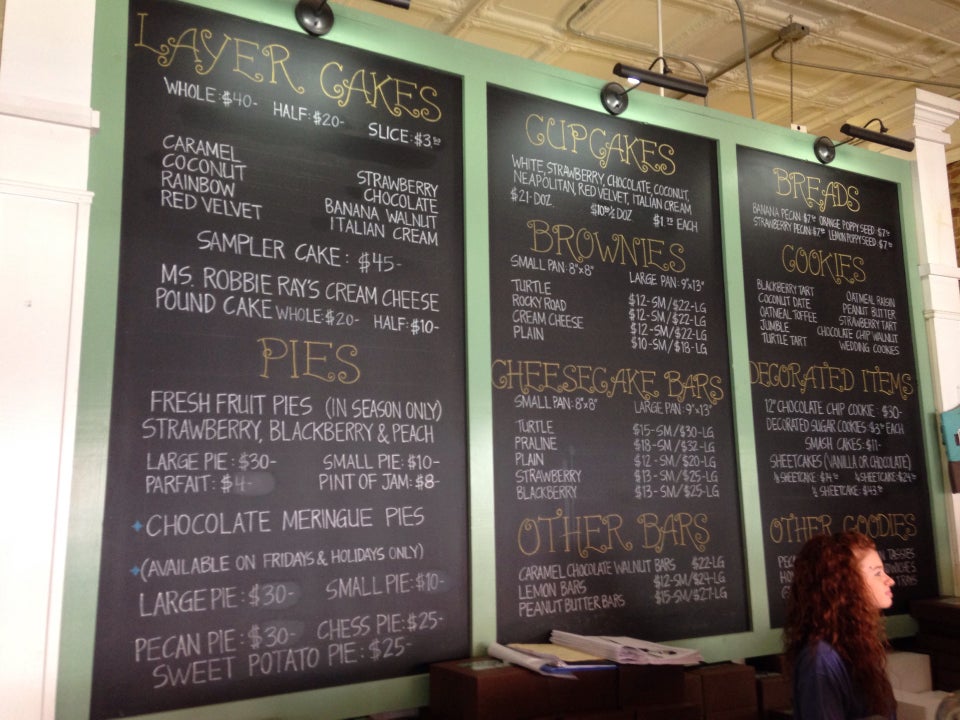 LAYER CAKES
WHOLE: $40- HALF: $20- SLICE: $3.50
CARAMEL
COCONUT
RAINBOW
RED VELVET
STRAWBERRY
CHOCOLATE
BANANA WALNUT
ITALIAN CREAM
SAMPLER CAKE: $45-
MS. ROBBIE RAY'S CREAM CHEESE
POUND CAKE WHOLE: $20- HALF: $10-
PIES
FRESH FRUIT PIES (IN SEASON ONLY)
STRAWBERRY, BLACKBERRY & PEACH
LARGE PIE: $30- SMALL PIE: $10-
PARFAIT: $4- PINT OF JAM: $8-
CHOCOLATE MERINGUE PIES
(AVAILABLE ON FRIDAYS & HOLIDAYS ONLY)
LARGE PIE: $30- SMALL PIE: $10-
PECAN PIE: $30- CHESS PIE: $25-
SWEET POTATO PIE: $25-
CUPCAKES
WHITE, STRAWBERRY, CHOCOLATE, COCONUT,
NEAPOLITAN, RED VELVET, ITALIAN CREAM
$21- DOZ ½ DOZ EACH
BROWNIES
SMALL PAN: 8"x8" LARGE PAN: 9"x13"
TURTLE $12-SM/$22-LG
ROCKY ROAD $12-SM/$22-LG
CREAM CHEESE $12-SM/$22-LG
PLAIN $10-SM/$18-LG
CHEESECAKE BARS
SMALL PAN: 8"x8" LARGE PAN: 9"x13"
TURTLE $15-SM/$30-LG
PRALINE $18-SM/$32-LG
PLAIN $12-SM/$20-LG
STRAWBERRY $13-SM/$25-LG
BLACKBERRY $13-SM/$25-LG
OTHER BARS
CARAMEL CHOCOLATE WALNUT BARS $22-LG
LEMON BARS $12-SM/$24-LG
PEANUT BUTTER BARS $15-SM/$27-LG
BREADS
BANANA PECAN ORANGE POPPY SEED
STRAWBERRY PECAN LEMON POPPY SEED
COOKIES
BLACKBERRY TART
COCONUT DATE
OATMEAL TOFFEE
JUMBLE
TURTLE TART
OATMEAL RAISIN
PEANUT BUTTER
STRAWBERRY TART
CHOCOLATE CHIP WALNUT
WEDDING COOKIES
DECORATED ITEMS
12" CHOCOLATE CHIP COOKIE: $30-
DECORATED SUGAR COOKIES: EACH
SMASH CAKES: $11-
SHEETCAKES (VANILLA OR CHOCOLATE)
SHEETCAKE: SHEETCAKE:
½ SHEETCAKE:
OTHER GOODIES
TASSIES
TRAYS